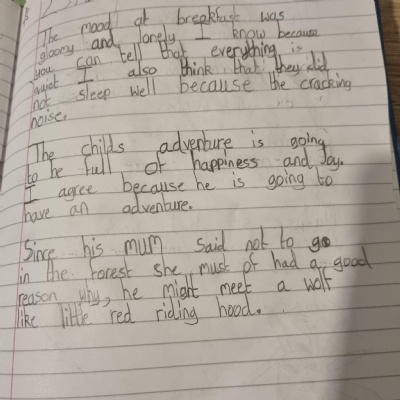 The mood at breakfast was
gloomy and lonely I know because
you can tell that everything is
quiet I also think that they did
not sleep well because the cracking
noise.
The childs adventure is going
to be full of happiness and Joy.
I agree because he is going to
have an adventure.
Since his mum said not to go
in the forest she must of had a good
reason why, he might meet a wolf
like little red riding hood.